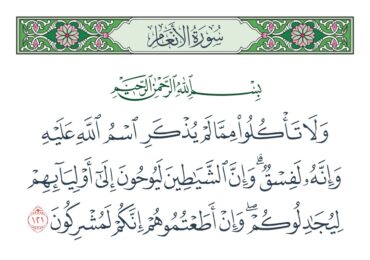 سُورَةُ الأَنْعَامِ
بِسْمِ ٱللَّهِ ٱلرَّحْمَٰنِ ٱلرَّحِيمِ
وَلَا تَأْكُلُوا۟ مِمَّا لَمْ يُذْكَرِ ٱسْمُ ٱللَّهِ عَلَيْهِ
وَإِنَّهُۥ لَفِسْقٌ ۗ وَإِنَّ ٱلشَّيَٰطِينَ لَيُوحُونَ إِلَىٰٓ أَوْلِيَآئِهِمْ
لِيُجَٰدِلُوكُمْ ۖ وَإِنْ أَطَعْتُمُوهُمْ إِنَّكُمْ لَمُشْرِكُونَ ١٢١